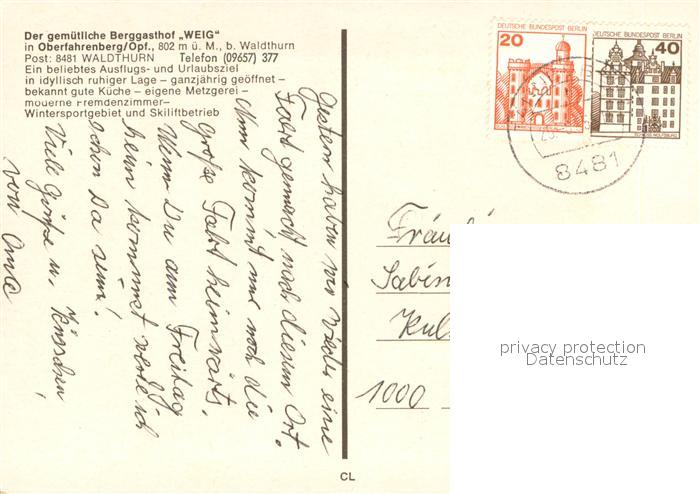 Der gemütliche Berggasthof „WEIG“
in Oberfahrenberg/Opf., 802 m ü. M., b. Waldthurn
Post: 8481 WALDTHURN Telefon (09657) 377
Ein beliebtes Ausflugs- und Urlaubsziel
in idyllisch ruhiger Lage – ganzjährig geöffnet –
bekannt gute Küche – eigene Metzgerei –
moderne Fremdenzimmer–
Wintersportgebiet und Skiliftbetrieb
Gestern haben wir wieder eine
Fahrt gemacht nach diesem Ort.
Nun kommt nur noch die
große Fahrt heimwärts.
Wenn Du am Freitag
heim kommst werde ich
schon da sein!
Viele Grüße u. Küsschen,
von Oma
DEUTSCHE BUNDESPOST BERLIN
20
DEUTSCHE BUNDESPOST BERLIN
40
SCHLOSS WOLFSBURG
8481
Fräul
Sabin
Kul
1000
privacy protection
Datenschutz
CL